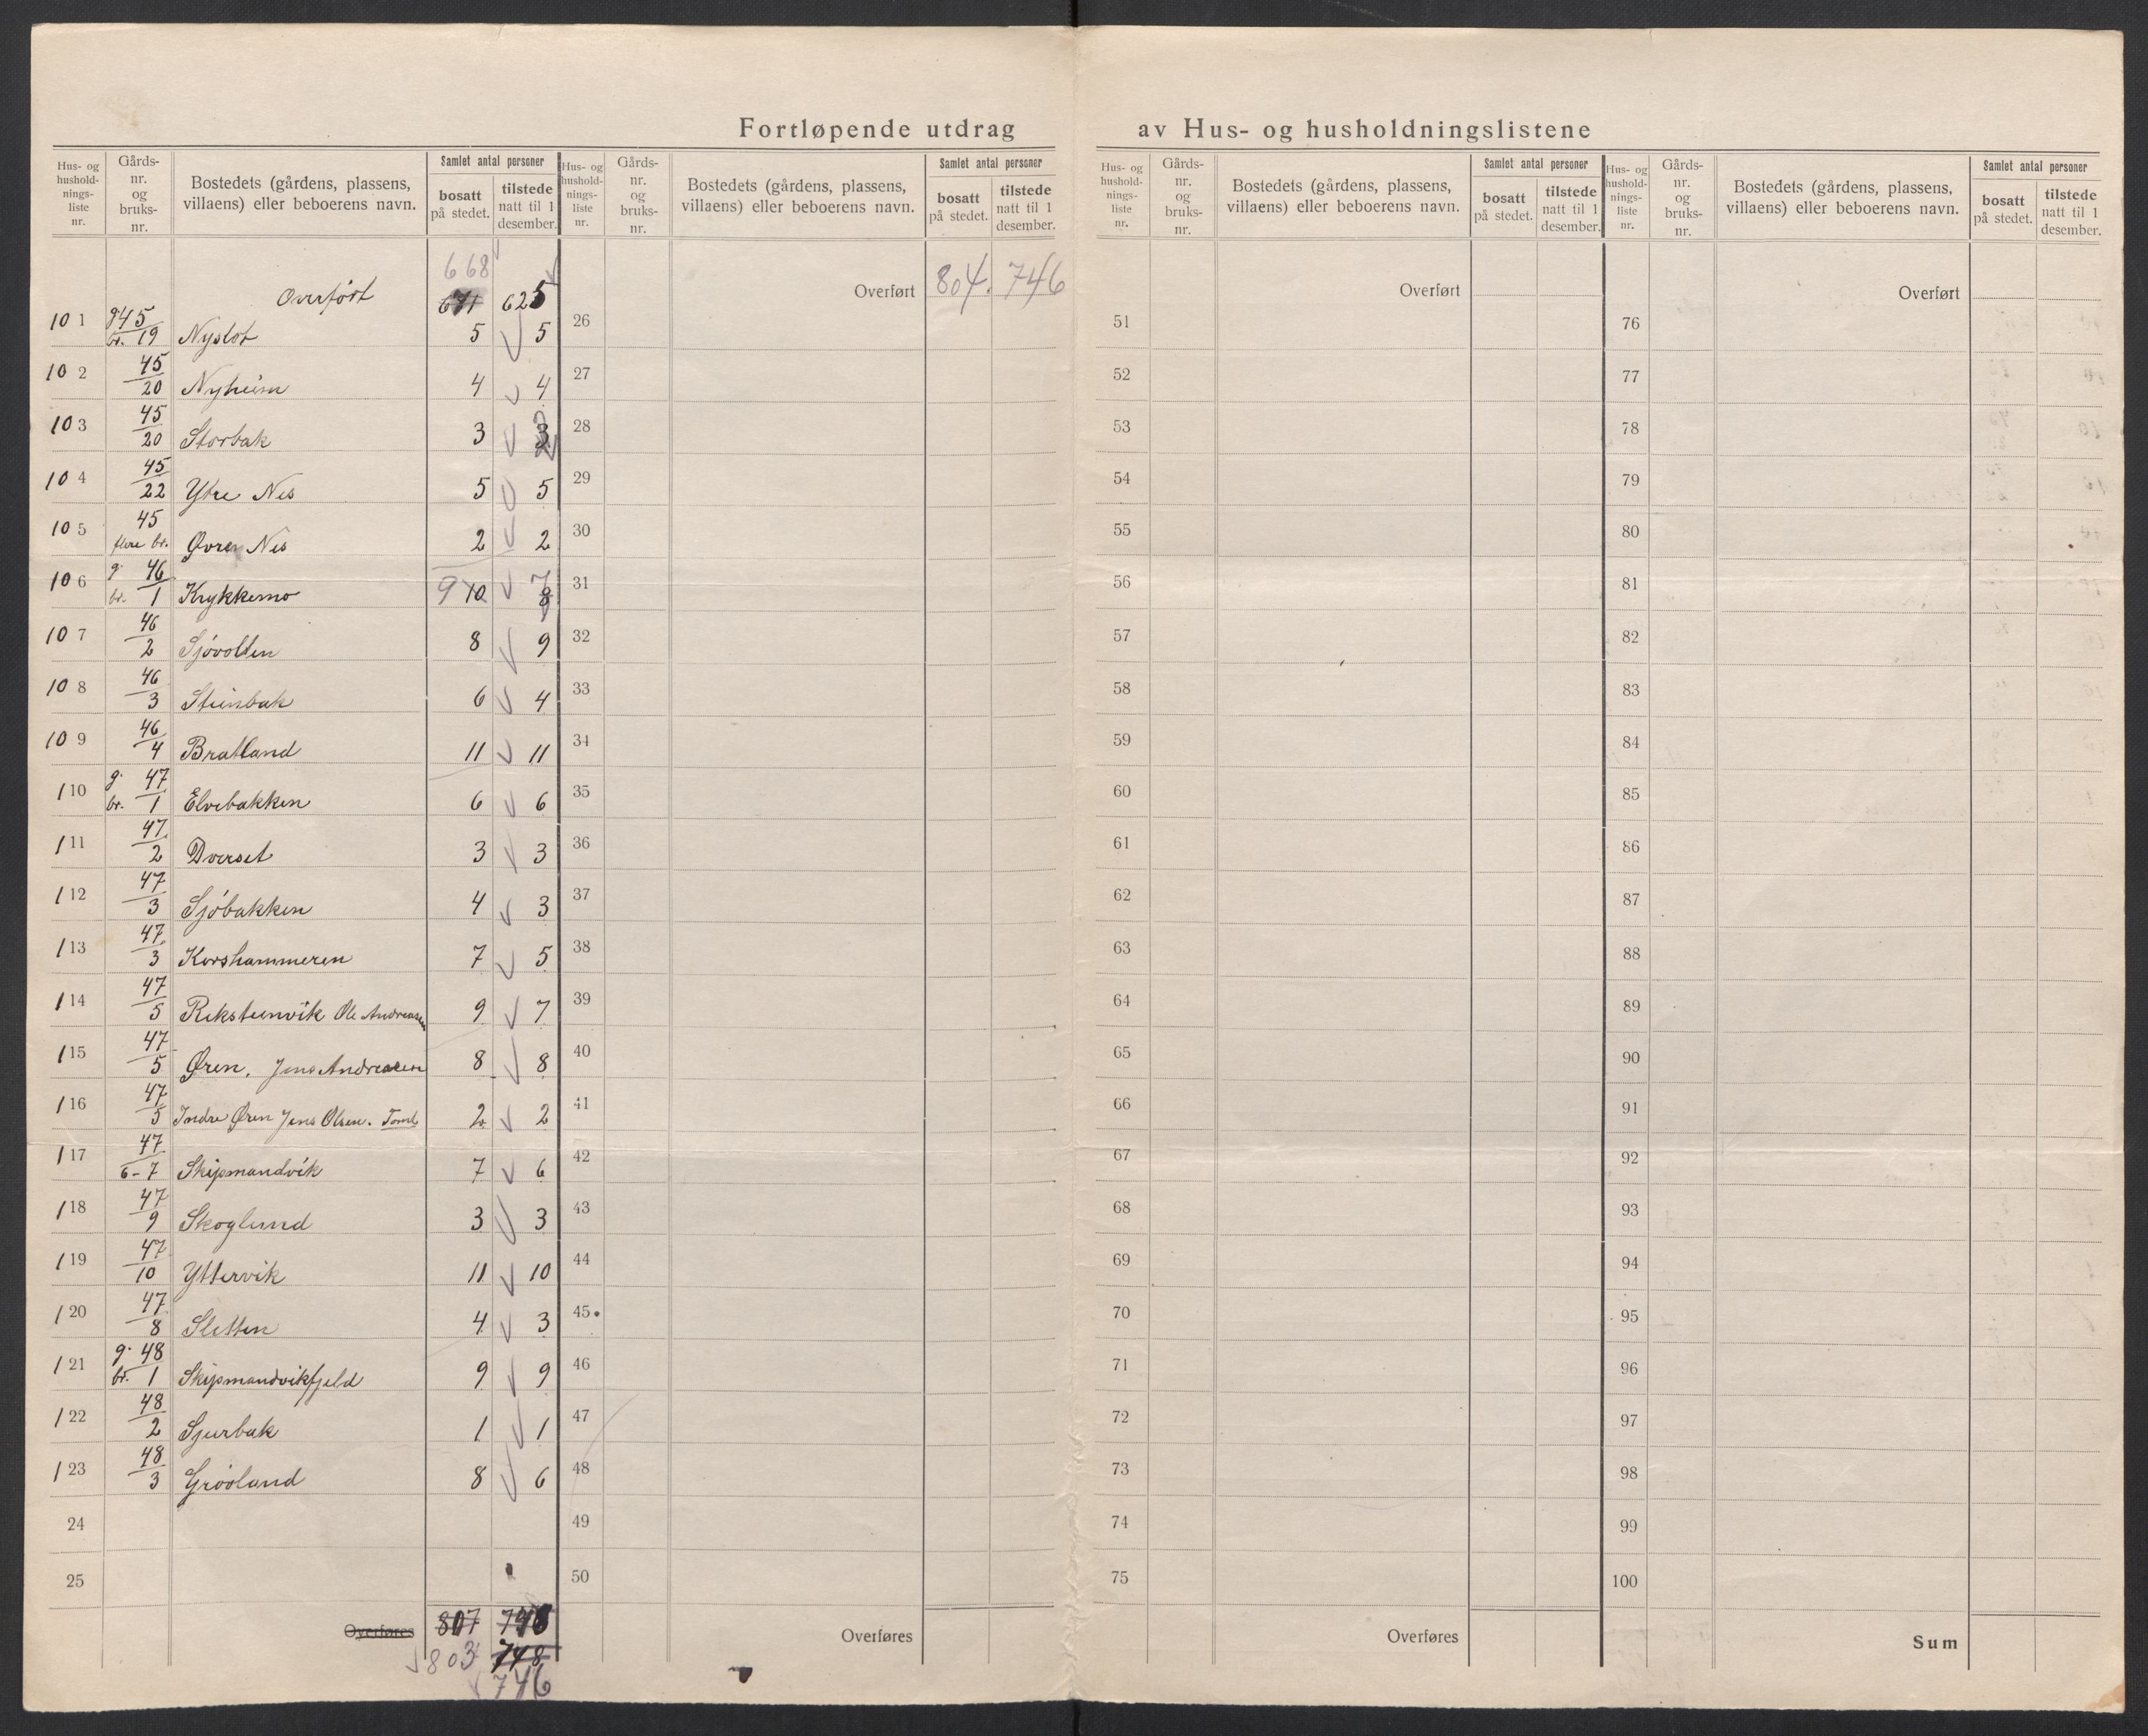 Fortløpende utdrag av Hus- og husholdningslistene
Hus- og hushold- nings- liste nr. | Gårds- nr. og bruks- nr. | Bostedets (gårdens, plassens, villaens) eller beboerens navn. | Samlet antal personer | bosatt på stedet. | tilstede natt til 1 desember.
Hus- og hushold- nings- liste nr. | Gårds- nr. og bruks- nr. | Bostedets (gårdens, plassens, villaens) eller beboerens navn. | Samlet antal personer | bosatt på stedet. | tilstede natt til 1 desember.
Hus- og hushold- nings- liste nr. | Gårds- nr. og bruks- nr. | Bostedets (gårdens, plassens, villaens) eller beboerens navn. | Samlet antal personer | bosatt på stedet. | tilstede natt til 1 desember.
Hus- og hushold- nings- liste nr. | Gårds- nr. og bruks- nr. | Bostedets (gårdens, plassens, villaens) eller beboerens navn. | Samlet antal personer | bosatt på stedet. | tilstede natt til 1 desember.
668
Overført 671 625
101 g 45 br. 19 Nyslot 5 5
102 45/20 Nyheim 4 4
103 45/20 Storbak 3 3 2
104 45/22 Ytre Nes 5 5
105 45 flere br. Øvre Nes 2 2
106 g. 46 br. 1 Krykkemo 9 10 7 8
107 46/2 Sjøvollen 8 9
108 46/3 Steinbak 6 4
109 46/4 Bratland 11 11
110 g. 47 br. 1 Elvebakken 6 6
111 47/2 Dverset 3 3
112 47/3 Sjøbakken 4 3
113 47/3 Korshammeren 7 5
114 47/5 Reksteenvik Ole Andreasen 9 7
115 47/5 Øren. Jens Andreasen 8 8
116 47/5 Indre Øren Jens Olsen. Tomt 2 2
117 47/6-7 Skipmandvik 7 6
118 47/9 Skoglund 3 3
119 47/10 Yttervik 11 10
120 47/8 Sletten 4 3
121 g. 48 br. 1 Skipmandvikfjeld 9 9
122 48/2 Sjurbak 1 1
123 48/3 Grøoland 8 6
24
25
Overføres 807 748
803 748
746
Overført 804. 746
26
27
28
29
30
31
32
33
34
35
36
37
38
39
40
41
42
43
44
45
46
47
48
49
50
Overføres
Overført
51
52
53
54
55
56
57
58
59
60
61
62
63
64
65
66
67
68
69
70
71
72
73
74
75
Overføres
Overført
76
77
78
79
80
81
82
83
84
85
86
87
88
89
90
91
92
93
94
95
96
97
98
99
100
Sum